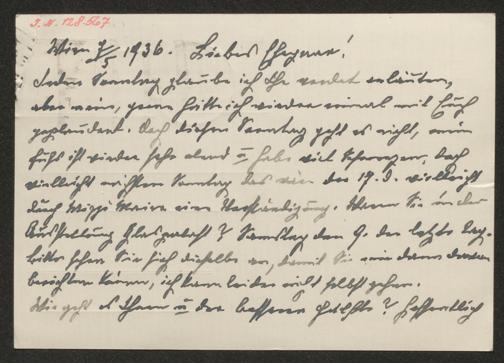 J.N. 128.567
Wien 7/5 1936. Liebes Ehepaar!
Jeden Sonntag glaube ich Ihr werdet erläuten,
aber nein, gerne hätte ich wieder einmal mit Euch
geplaudert. Doch diesen Sonntag geht es nicht, mein
Fuß ist wieder sehr elend u habe viel Schmerzen, doch
vielleicht nächsten Sonntag das wäre der 17.5. vielleicht
durch Mizzi Maier eine Verständigung. Waren Sie in der
Ausstellung Samstag den 9. der letzte Tag.
bitte sehen Sie sich dieselbe an, damit Sie mir dann davon
berichten können, ich kann leider nicht selbst gehen.
Wie geht es Ihnen u der besseren Hälfte? Hoffentlich